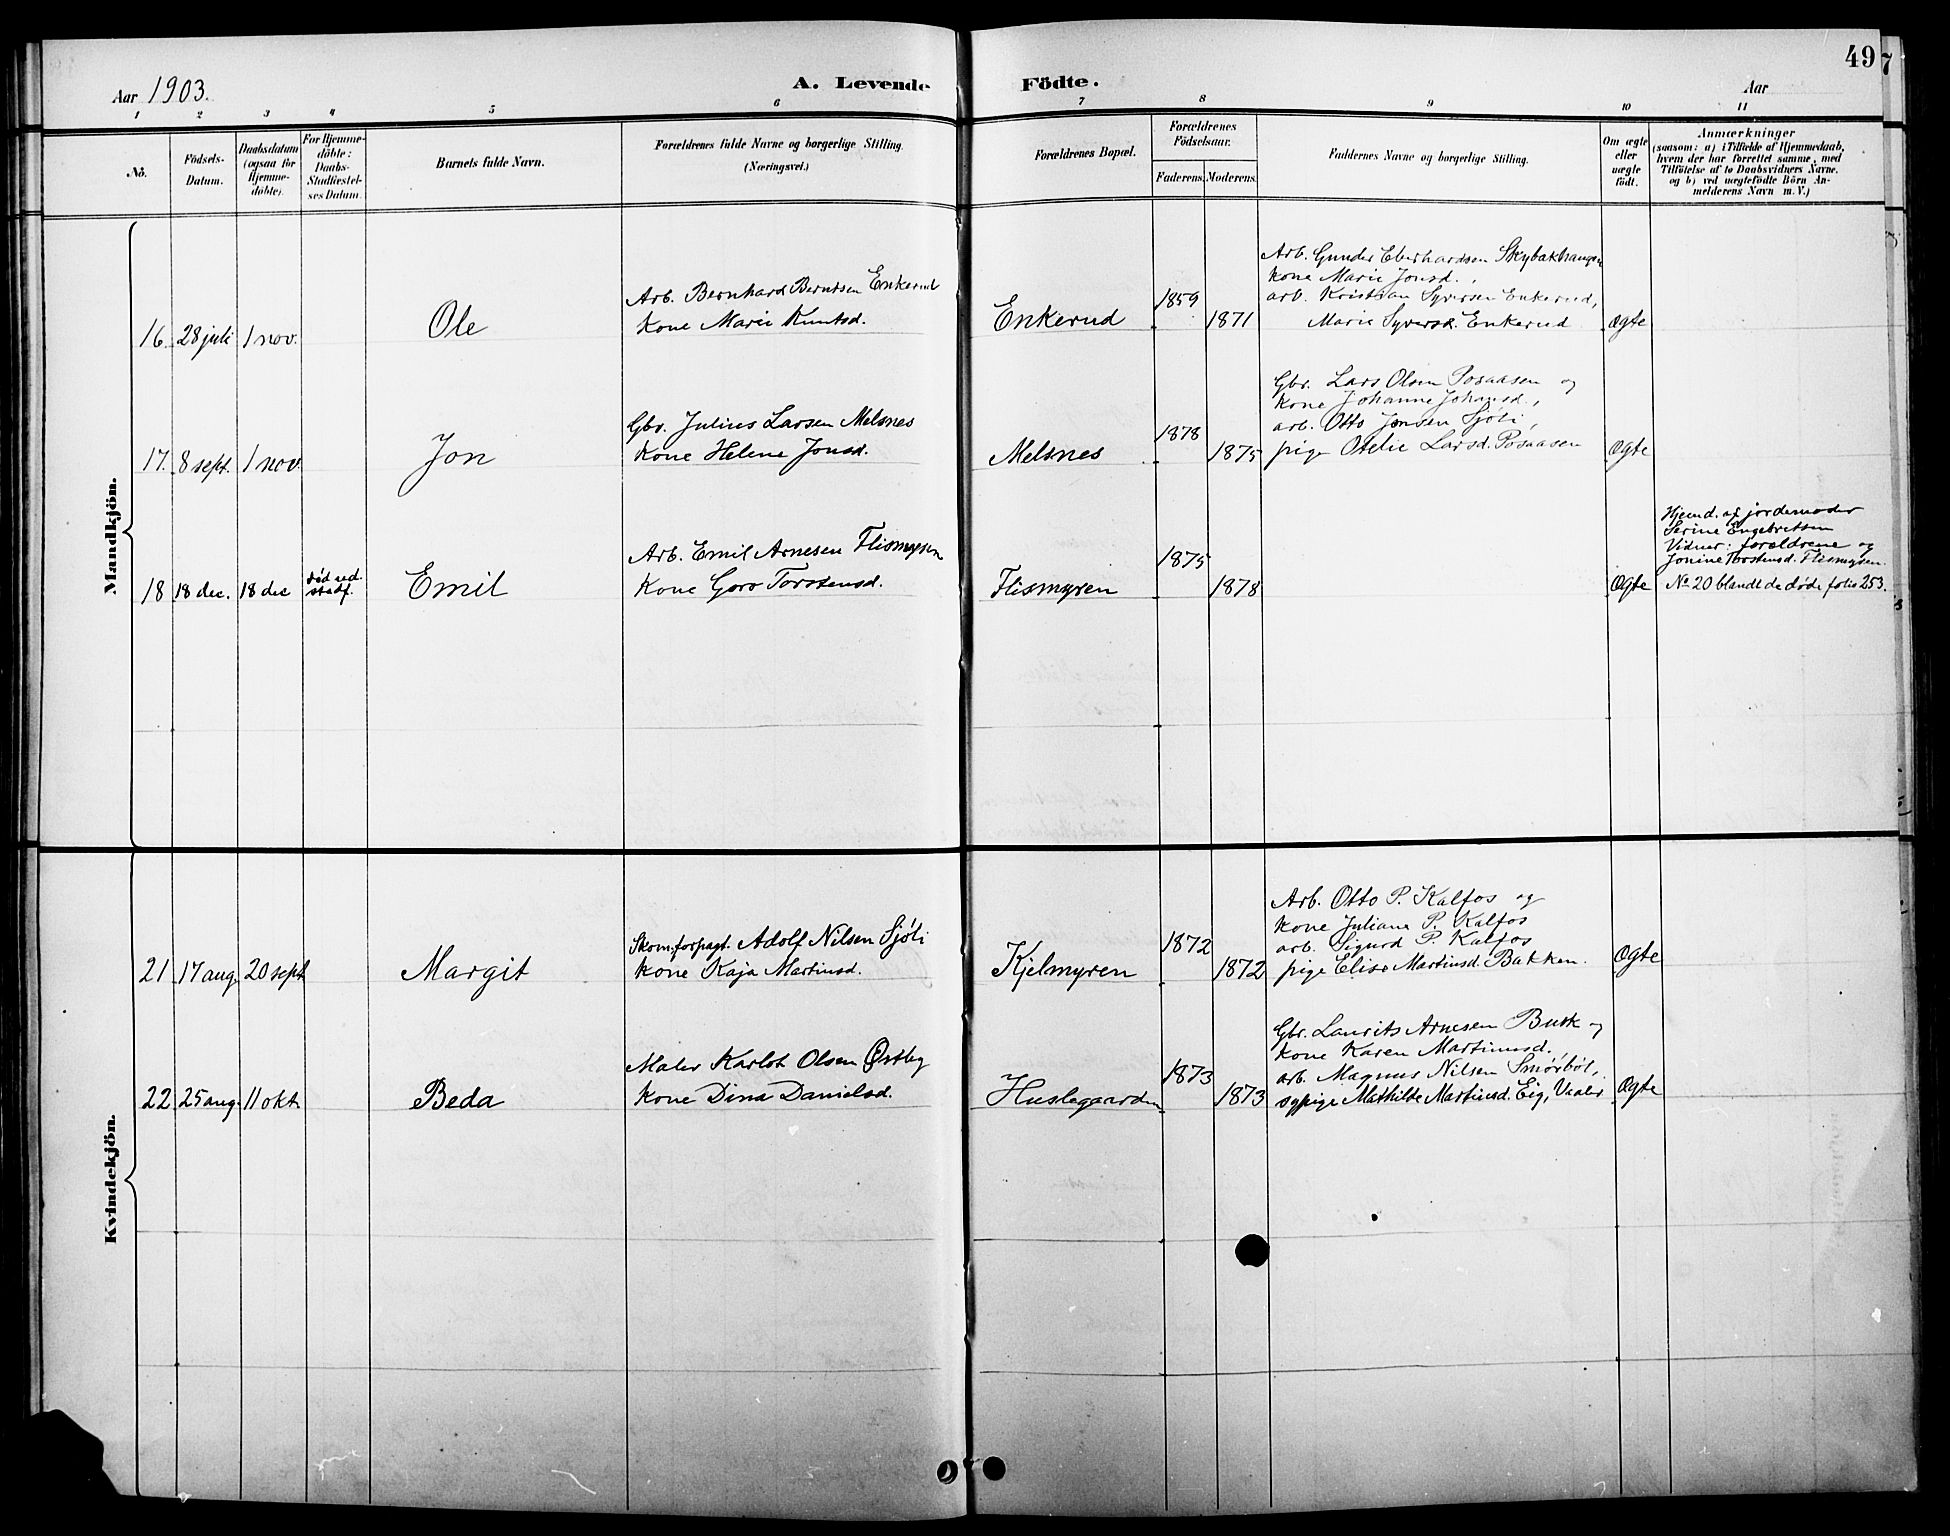 49
7
Aar 1903.
A. Levende Födte.
Aar
1 2 3 4 5 6 7 8 9 10 11
No.
Födsels-Datum.
Daabsdatum (ogsaa for Hjemme-döbte).
For Hjemme-döbte: Daabs-Stadfæstel-ses Datum.
Barnets fulde Navn.
Forældrenes fulde Navne og borgerlige Stilling. (Næringsvei.)
Forældrenes Bopæl.
Forældrenes Födselsaar.
Faderens. Moderens.
Faddernes Navne og borgerlige Stilling.
Om ægte eller uægte födt.
Anmærkninger
(saasom: a) i Tilfælde af Hjemmedaab,
hvem der har forrettet samme, med
Tilföielse af to Daabsvidners Navne,
og b) ved uægtefödte Börn An-
melderens Navn m. V.)
Mandkjön.
16. 28 juli 1 nov. Ole
Arb. Bernhard Berntsen Enkerud
Kone Marie Knutsd.
Enkerud 1859 1871
Arb. Gunder Eberhardsen Skybakhaugen
kone Marie Jonsd.,
arb. Kristian Syversen Enkerud,
Marie Syversd. Enkerud
Ægte
17. 8 sept. 1 nov. Jon
Gbr. Julius Larsen Melsnes
Kone Helene Jonsd.
Melsnes 1878 1875
Gbr. Lars Olsen Posaasen og
kone Johanne Johansd.,
arb. Otto Jonsen Sjöli,
pige Otelie Larsd. Posaasen
Ægte
18 18 dec. 18 dec
död ved
stadf.
Emil
Arb. Emil Arnesen Flismyren
Kone Goro Torstensd.
Flismyren 1875 1878
Ægte
Hjemd. af jordemoder
Serine Engebretsen
Vidner: forældrene og
Jonine Torstensd. Flismyren.
No 20 blandt de døde folio 253.
Kvindekjön.
21 17 aug. 20 sept Margit
Skom.forpagt. Adolf Nilsen Sjöli
kone Kaja Martinsd.
Kjelmyren 1872 1872
Arb. Otto P. Kalfos og
kone Juliane P. Kalfos
arb. Sigurd P. Kalfos
pige Elise Martinsd. Bakken.
Ægte
22 25 aug. 11 okt. Beda
Maler Karlot Olsen Østby
Kone Dina Danielsd.
Huslegaarden 1873 1873
Gbr. Laurits Arnesen Busk og
kone Karen Martinusd.
arb. Magnus Nilsen Smörböl,
sypige Mathilde Martinsd. Eig, Vaaler
Ægte